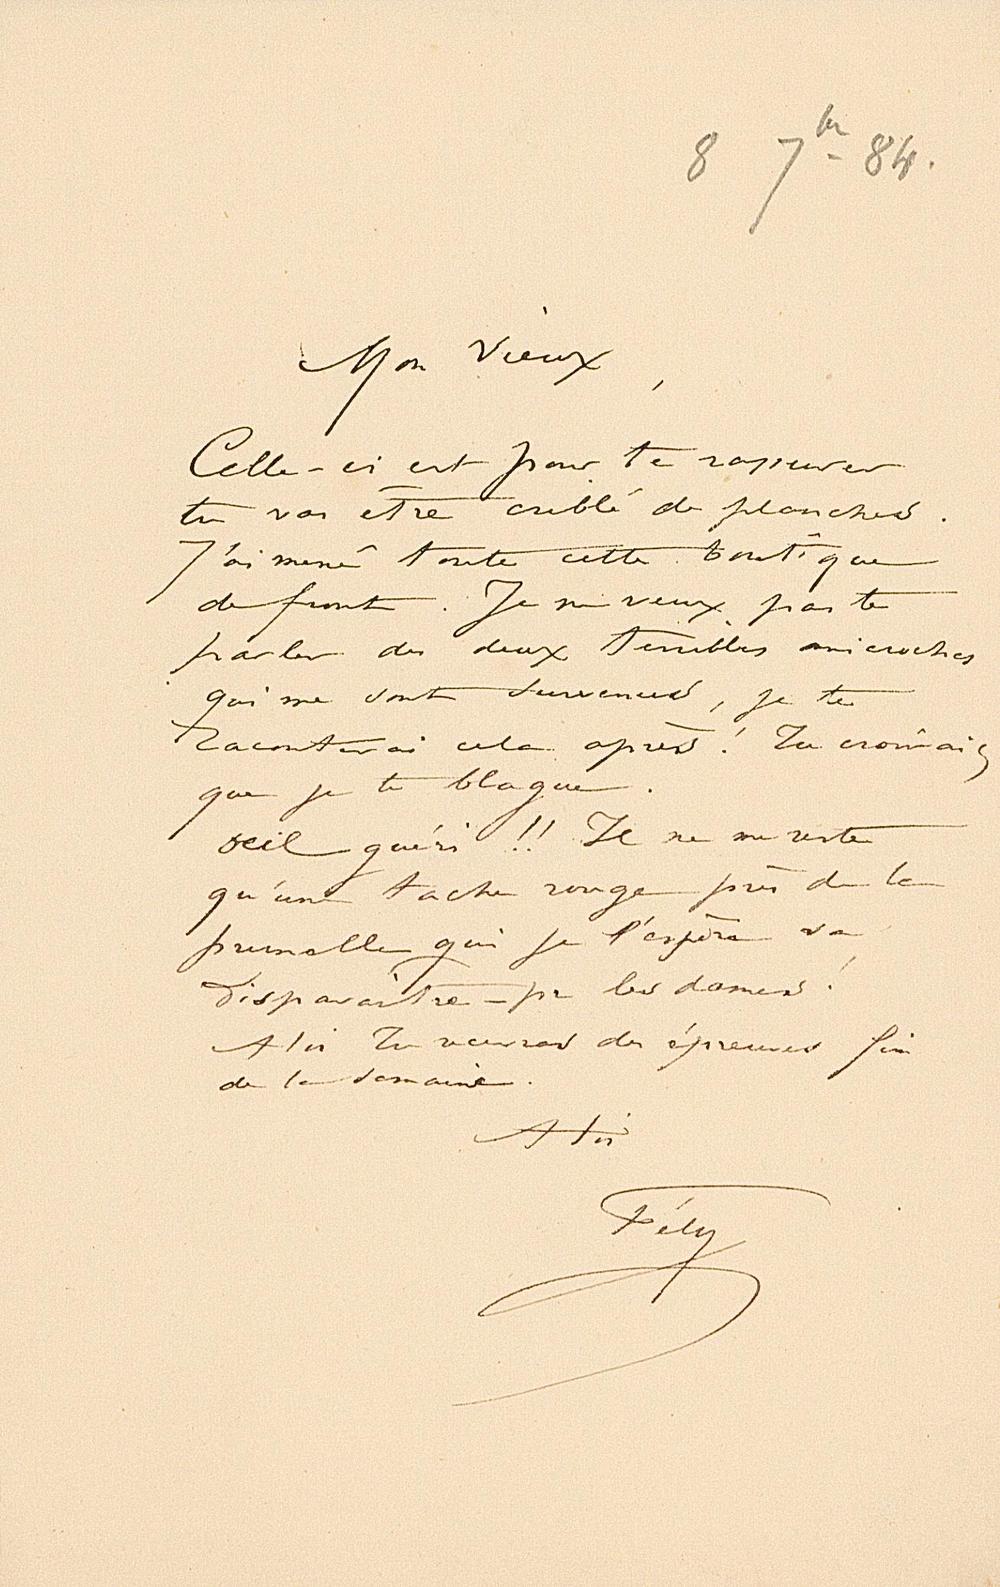 8 7bre 84.
Mon Vieux,
Celle-ci est pour te rassurer
tu vas être criblé de planches.
J'ai mené toute cette boutique
de front. Je ne veux pas te
parler des deux terribles anicroches
qui me sont survenues, je te
raconterai cela après! Tu croirais
que je te blague.
oeil guéri!! Il ne me reste
qu'une tache rouge près de la
prunelle qui je l'espère va
disparaître – pr les dames!
A toi Tu recevras des épreuves fin
de la semaine.
A toi
Fély